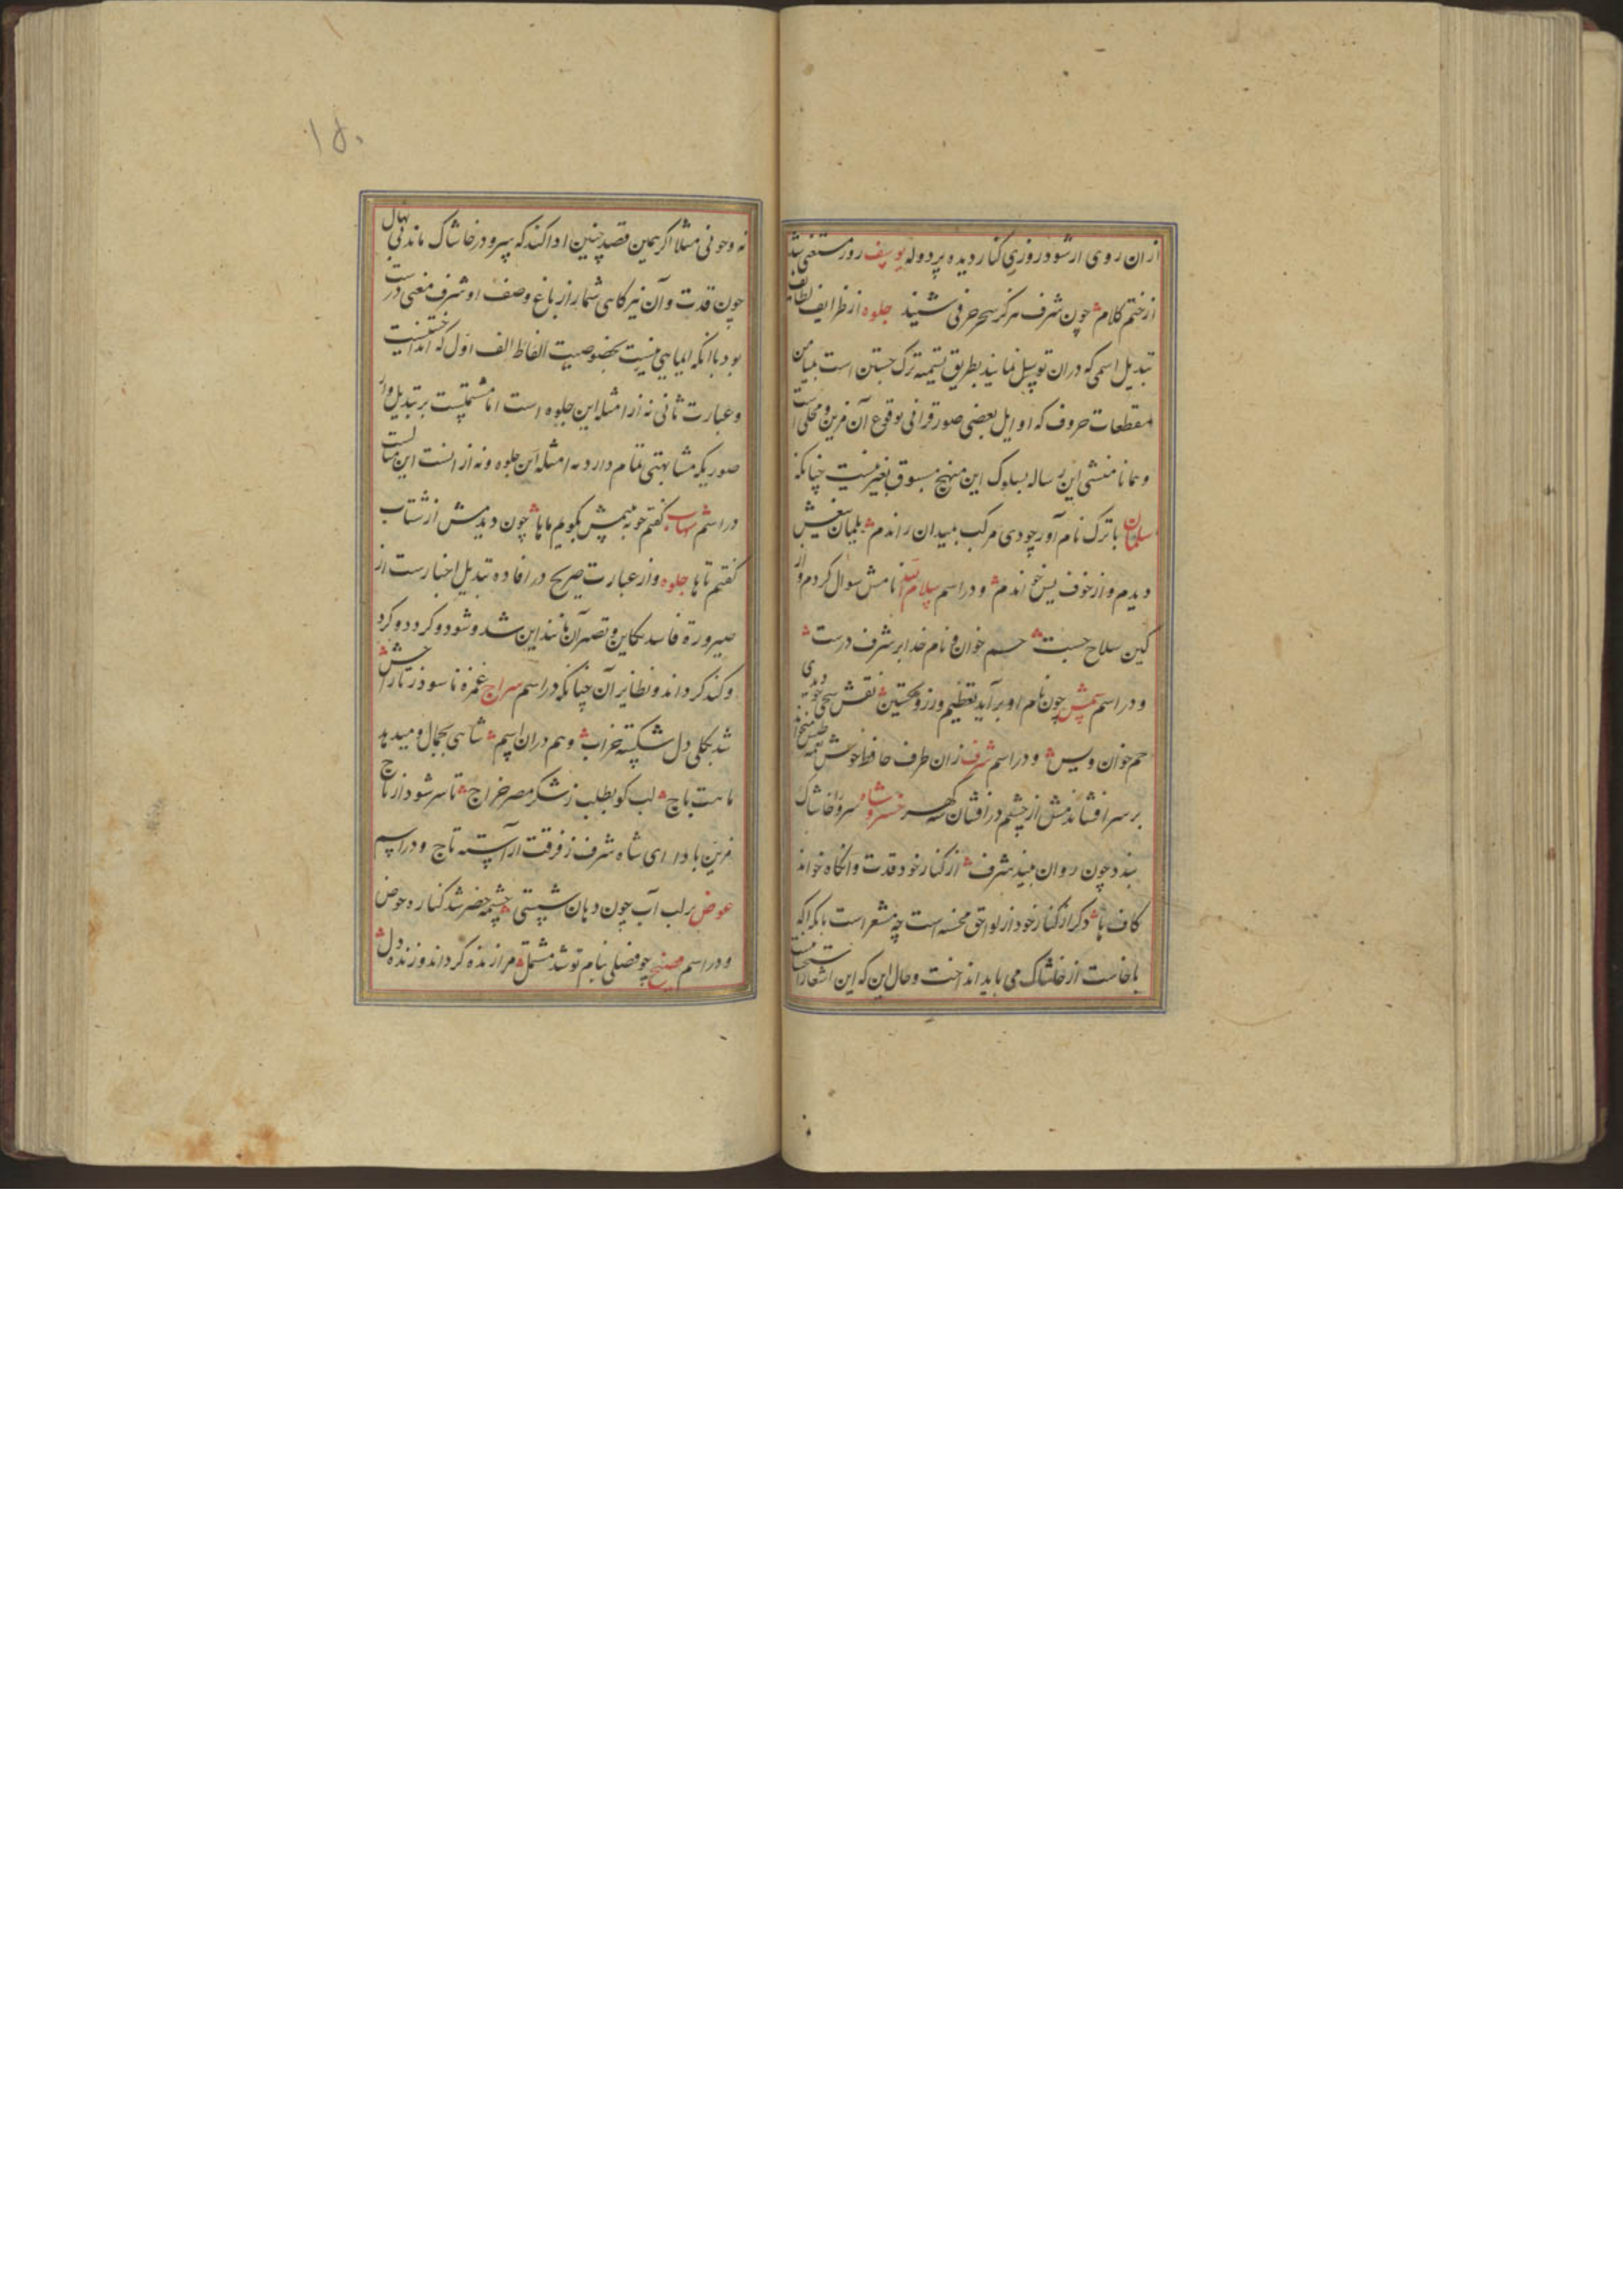 ازان روی ار شود روزی کنار دیده پر دوله یوسف روز مستغنی شد
از ختم کلام چون شرف هرگز سحر حرفی شنید جلوه از ظرایف لطایف
تبدیل اسمی که دران توسل نمایند بطریق تسمیه ترک جستن است بمیامن
مقطعات حروف که اوایل بعضی صور قرانی بوقوع آن مزین و محلی است
و همانا منشی این رساله بسلوک این منهج مسبوق بغیر نیست چنانکه
سلمان با ترک نام آور چو دی مرکب بمیدان راندم
دیدم و از خوف یس خواندم و در اسم سلام الله نامش سوال کردم و از
کین سلاح حسبت حم خوان و نام خدا بر شرف درست
و در اسم شمس چون نام او برآید تعظیم ورز و تحسین نقش
حم خوان و یس و در اسم شرف زان طرف حافظ خوش نغمه
بر سر افشاندمش از چشم در افشان گهر خسرو شاه سرو را خاشاک
بندد چون روان بیند شرف از کنار خود قدت وانگاه خواند
کاف ها ذکر از کنار خود از لواحق محسنه است چه مشعر است بانکه
با خاست از خاشاک می باید انداخت و حال این که این اشعار را
نه وجوبی مثلا اگر همین قصد چنین ادا کنند که سرو در خاشاک ماند بی نهال
چون قدت و آن نیز کاهی شمار از باغ وصف او شرف معنی درست
بود باانکه ایمایی نیست بخصوصیت الفاظ الف اول که انداختنیست
و عبارت ثانی نه از امثله این جلوه است اما مشتملیست بر تبدیل و از
صوریکه مشابهتی تمام دارد به امثله این جلوه و نه از انست این مثالست
در اسم شهاب گفتم چو به بینمش بگویم ماها چون دیدمش از شتاب
گفتم تاها جلوه و از عبارت صریح در افاده تبدیل اخبارست از
صیرورة فاسد بکاین و تصیر آن مانند این شد و شود و کرد و کرد
و کند کرداند و نظایر آن چنانکه در اسم سراج غمزه ناسود ز تاراج
شد بکلی دل شکسته خراب و هم دران اسم شاهی بجمال و میدهد
ماهت باج لب کو بطلب ز شکر مصر خراج تا سر شود از تاج
مزین بادا ای شاه شرف ز فرقت آراسته تاج و در اسم
عوض بر لب آب چون دهان شستی چشمه خضر شد کناره حوض
و در اسم چو فضلی بنام تو شد مشتمل مرا زنده کرداند و زنده دل
۱۵۰